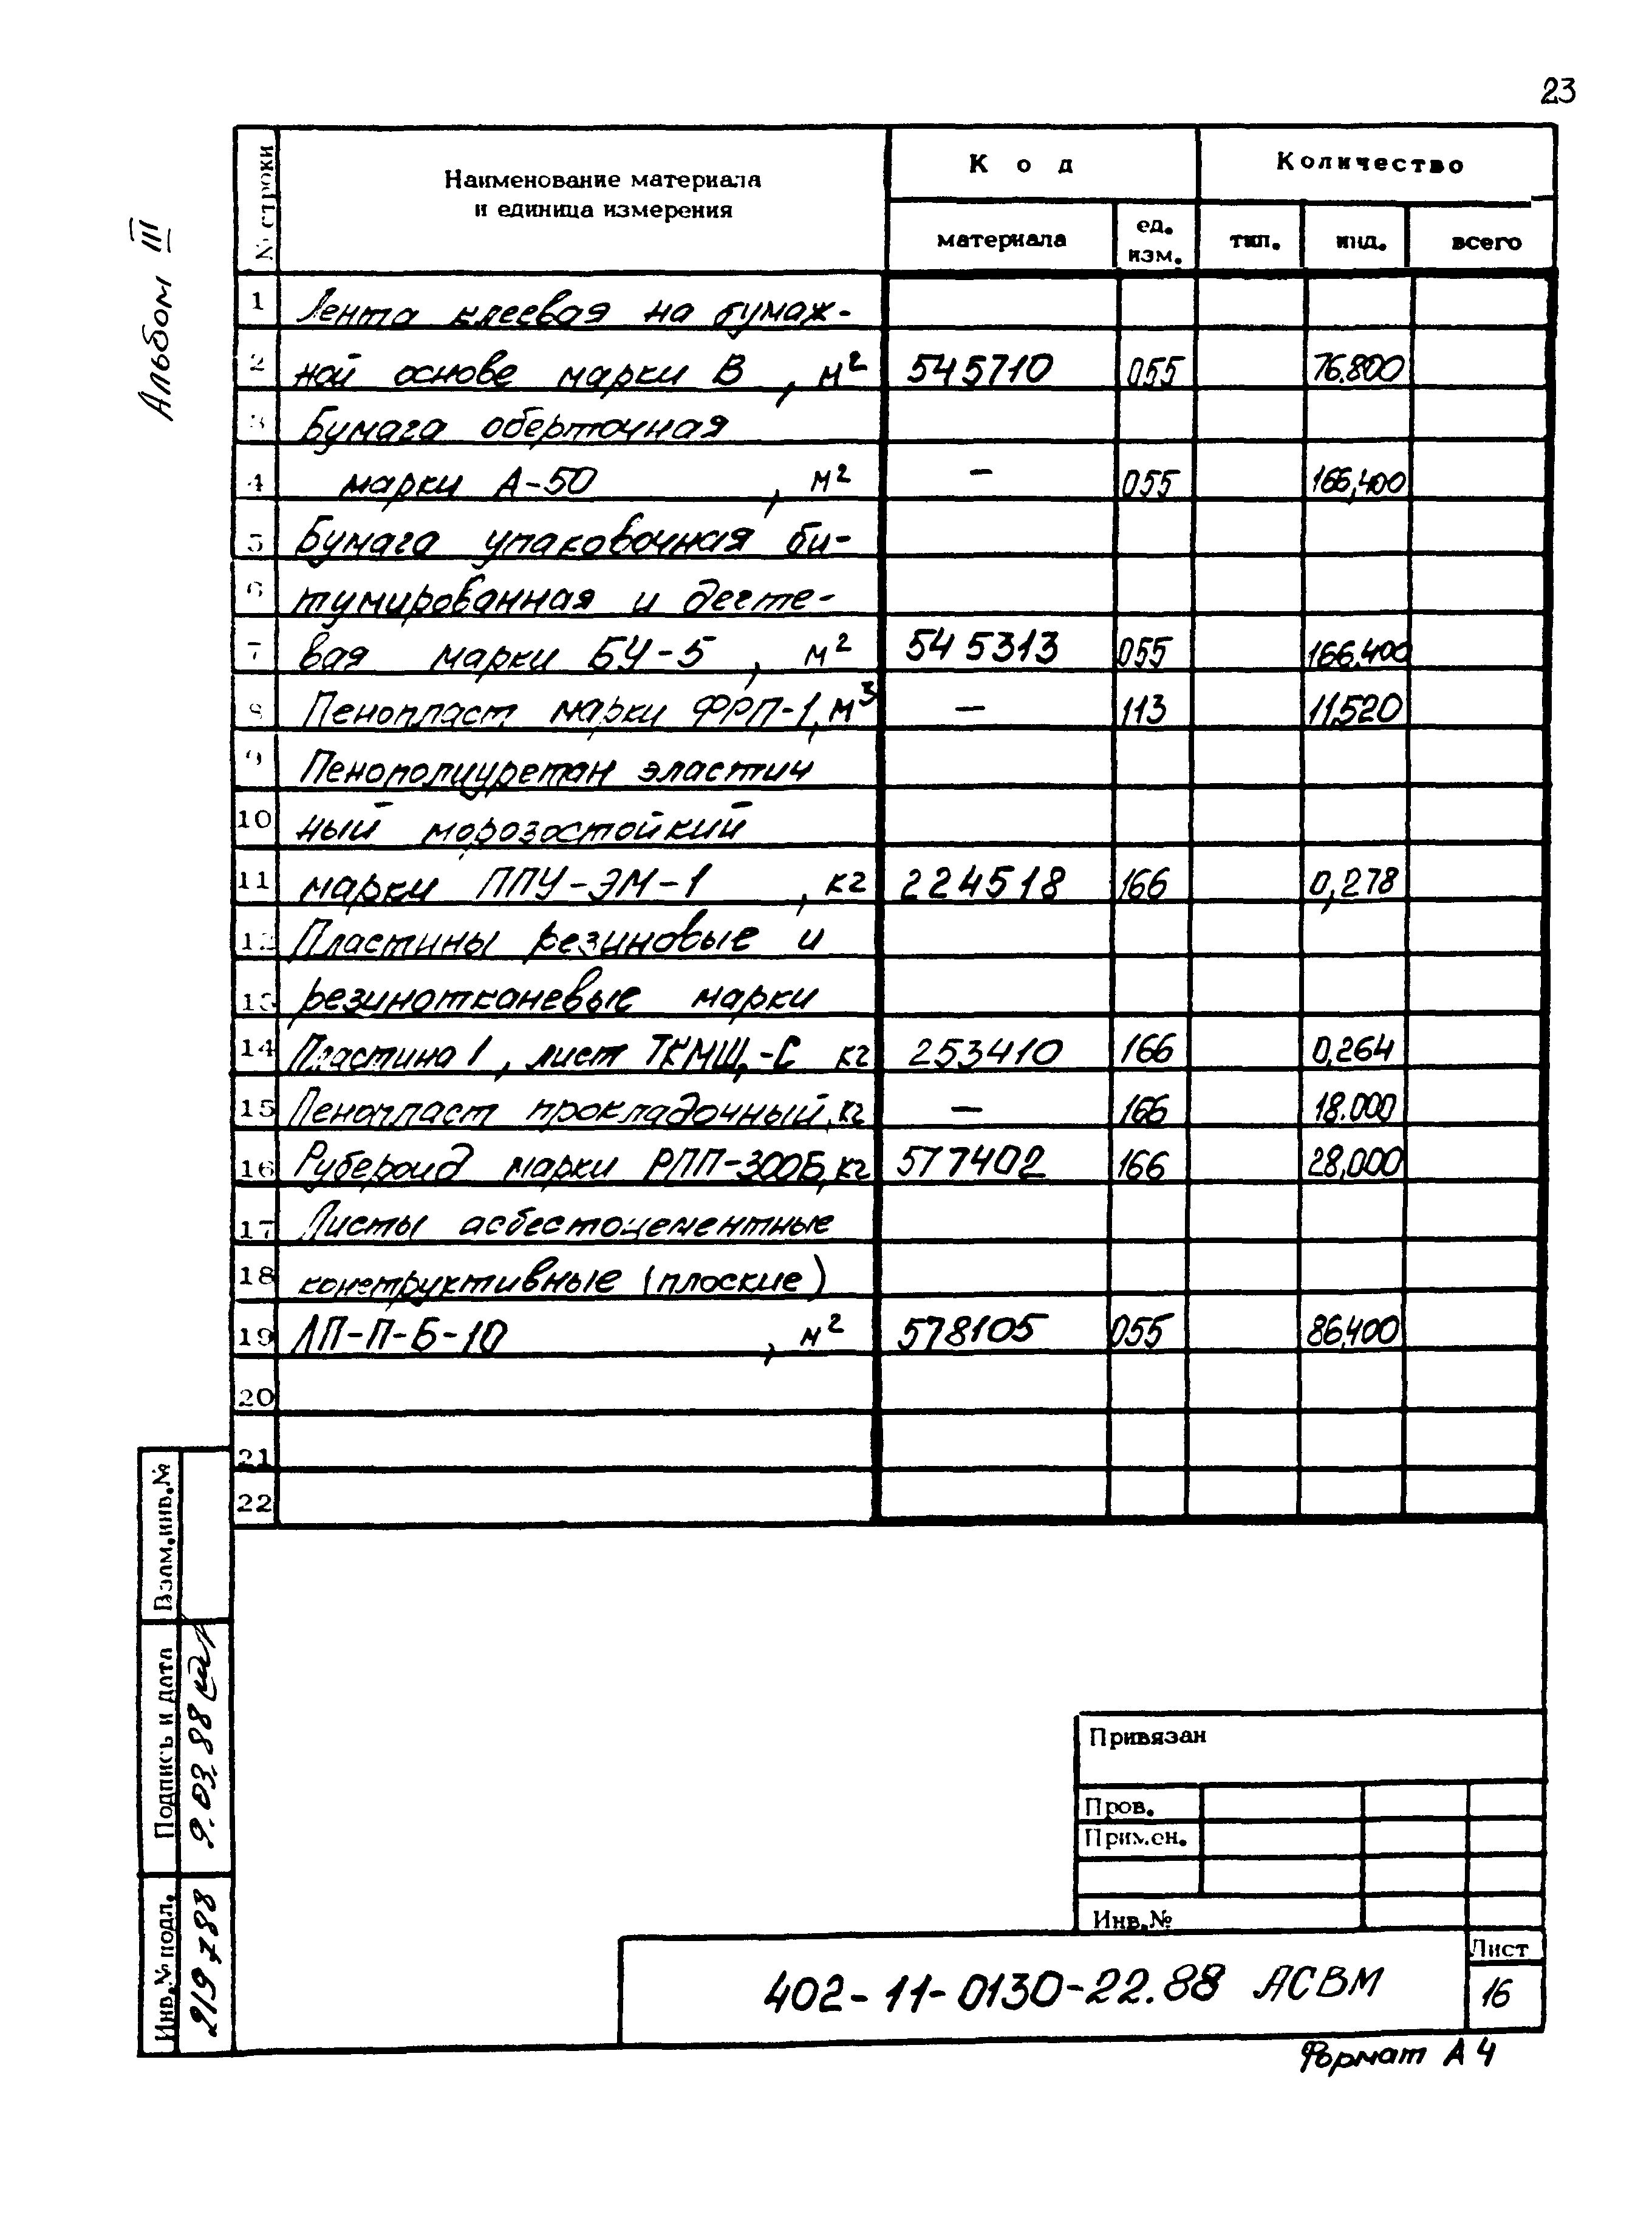 23
Альбом III
№ строки
Наименование материала
и единица измерения
Код
Количество
материала
ед.
изм.
тип.
инд.
всего
1 Лента клеевая на бумаж-
2 ной основе марки В , м² 545710 055 76.800
3 Бумага оберточная
4 марки А-50 , м² – 055 166,400
5 Бумага упаковочная би-
6 тумированная и дегте-
7 вая марки БУ-5 , м² 545313 055 166,400
8 Пенопласт марки ФРП-1, м³ – 113 11,520
9 Пенополиуретан эластич
10 ный морозостойкий
11 марки ППУ-ЭМ-1 , кг 224518 166 0,278
12 Пластины резиновые и
13 резинотканевые марки
14 Пластина 1 , лист ТКМЩ,-С кг 253410 166 0,264
15 Пенопласт прокладочный, кг – 166 18.000
16 Рубероид марки РПП-300Б, кг 577402 166 28,000
17 Листы асбестоцементные
18 конструктивные (плоские)
19 ЛП-П-Б-10 , м² 578105 055 86,400
20
21
22
Взам.инв.№
Подпись и дата
9.03.88
Инв.№ подл.
219788
Привязан
Пров.
Примен.
Инв.№
402-11-0130-22.88 АСВМ
Лист
16
Формат А4